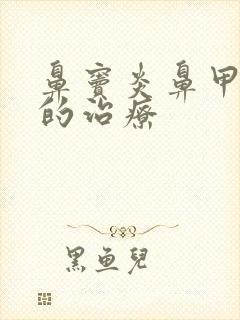 鼻窦炎鼻甲
的治疗
黑鱼儿